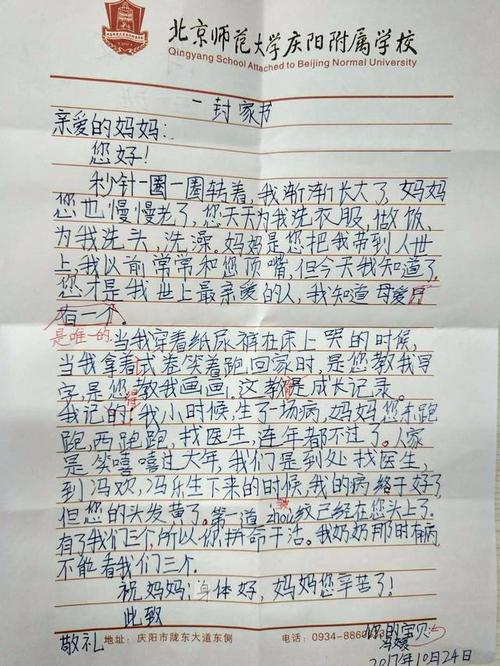 北京师范大学庆阳附属学校
Qingyang School Attached to Beijing Normal University
一封家书
亲爱的妈妈:
您好!
秒针一圈一圈转着,我渐渐长大了,妈妈
您也慢慢老了,您天天为我洗衣服,做饭,
为我洗头,洗澡。妈妈是您把我带到人世
上,我以前常常和您顶嘴,但今天我知道了
您才是我世上最亲爱的人,我知道母爱只
有一个。
是唯一的。
当我穿着纸尿裤在床上哭的时候,
当我拿着试卷笑着跑回家时,是您教我写
字,是您教我画画。这都是成长记录。
我记得!我小时候,生了一场病,妈妈您东跑
跑,西跑跑,找医生,连年都不过了。人家
是笑嘻嘻过大年,我们是到处找医生,
到冯欢,冯乐生下来的时候,我的病终于好了
但您的头发黄了。第一道zhou皱纹已经在您头上了。
有了我们三个,所以你拼命干活。我奶奶那时有病,
不能看我们三个。
祝妈妈:身体好,妈妈您辛苦了!
此致
敬礼
您的宝贝:
2017年10月24日
地址:庆阳市陇东大道东侧
电话:0934-8860